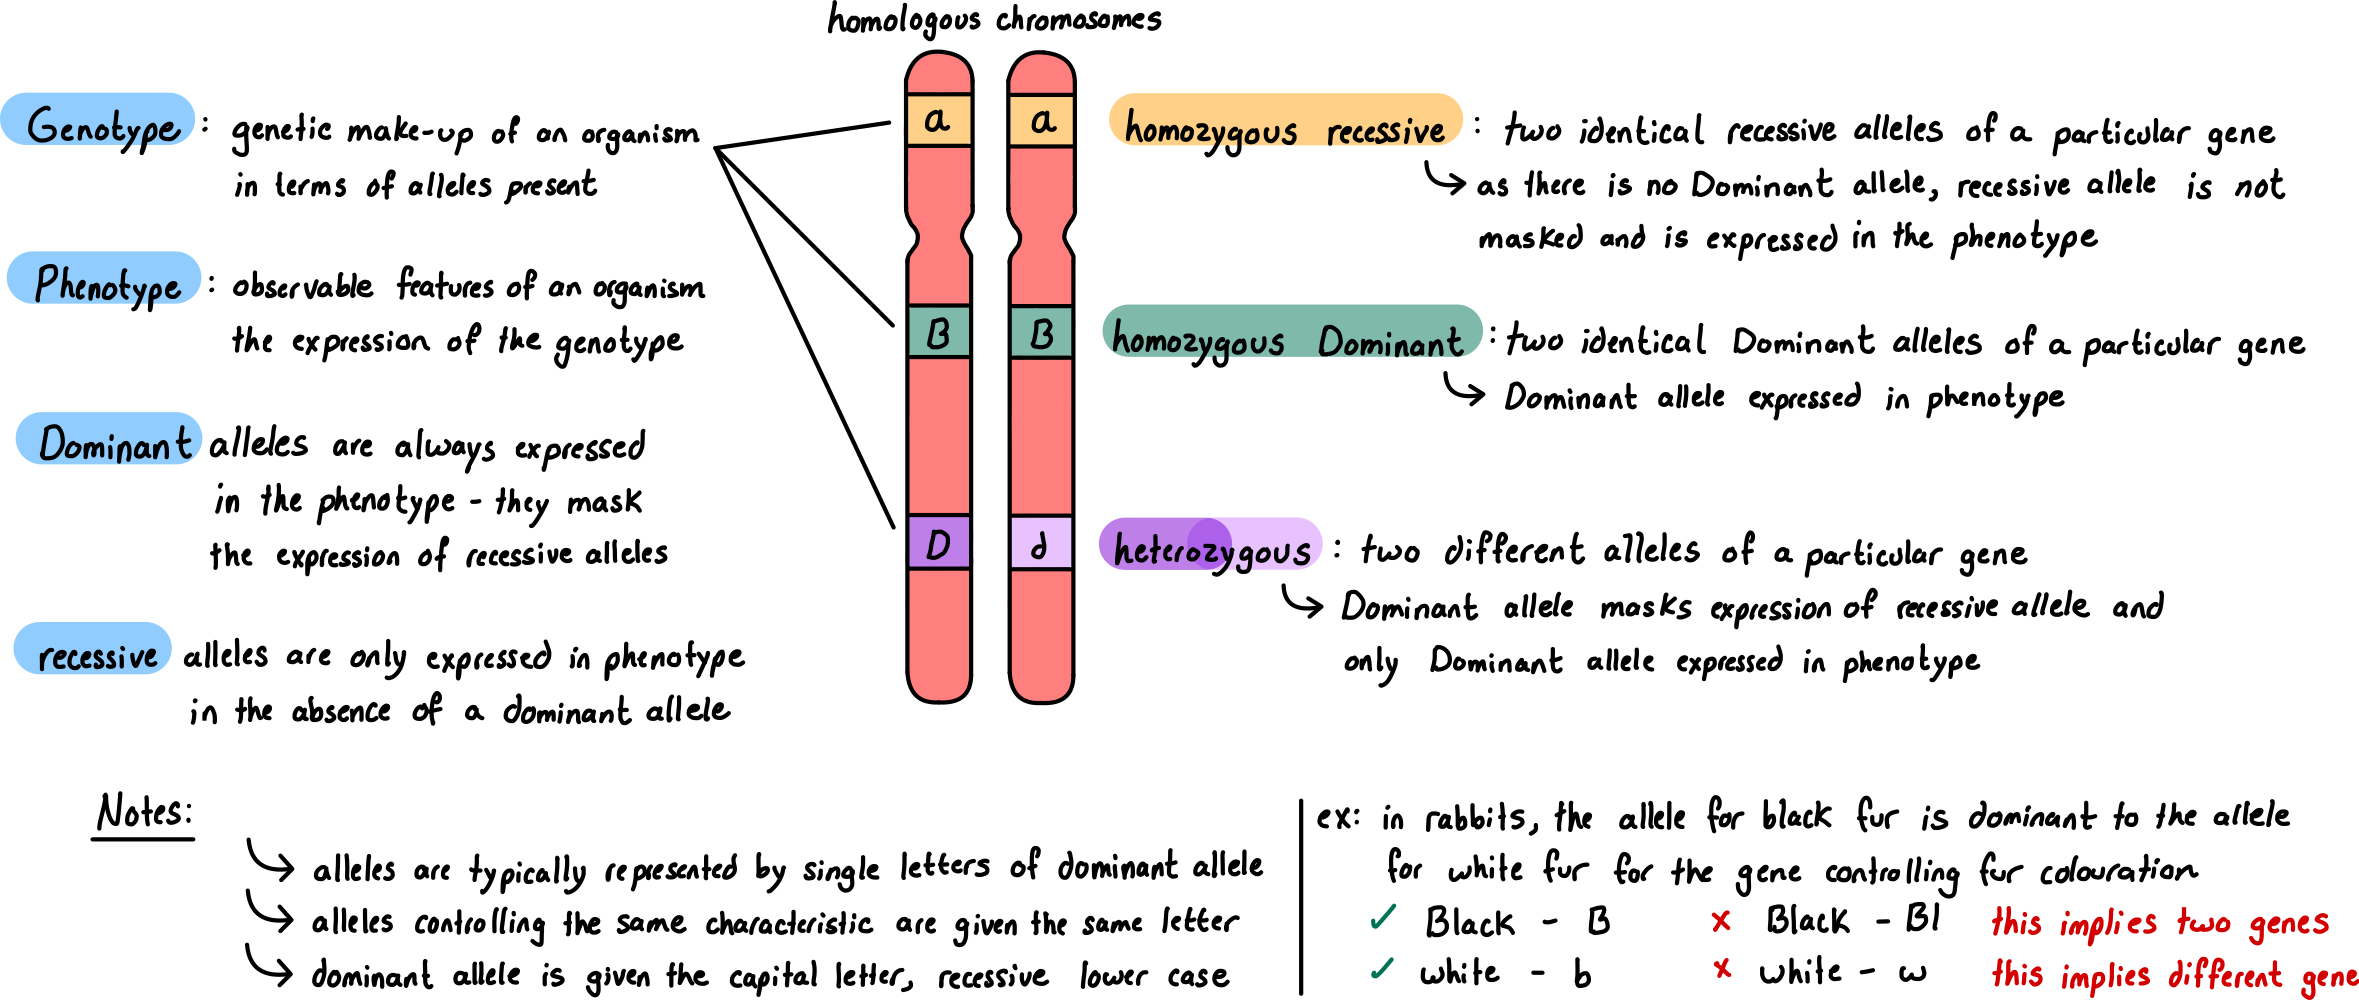 homologous chromosomes
Genotype : genetic make-up of an organism
in terms of alleles present
Phenotype : observable features of an organism
the expression of the genotype
Dominant alleles are always expressed
in the phenotype - they mask
the expression of recessive alleles
recessive alleles are only expressed in phenotype
in the absence of a dominant allele
a a
B B
D d
homozygous recessive : two identical recessive alleles of a particular gene
as there is no Dominant allele, recessive allele is not
masked and is expressed in the phenotype
homozygous Dominant : two identical Dominant alleles of a particular gene
Dominant allele expressed in phenotype
heterozygous : two different alleles of a particular gene
Dominant allele masks expression of recessive allele and
only Dominant allele expressed in phenotype
Notes:
alleles are typically represented by single letters of dominant allele
alleles controlling the same characteristic are given the same letter
dominant allele is given the capital letter, recessive lower case
ex: in rabbits, the allele for black fur is dominant to the allele
for white fur for the gene controlling fur colouration
✓ Black - B x Black - Bl this implies two genes
✓ white - b x white - w this implies different gene